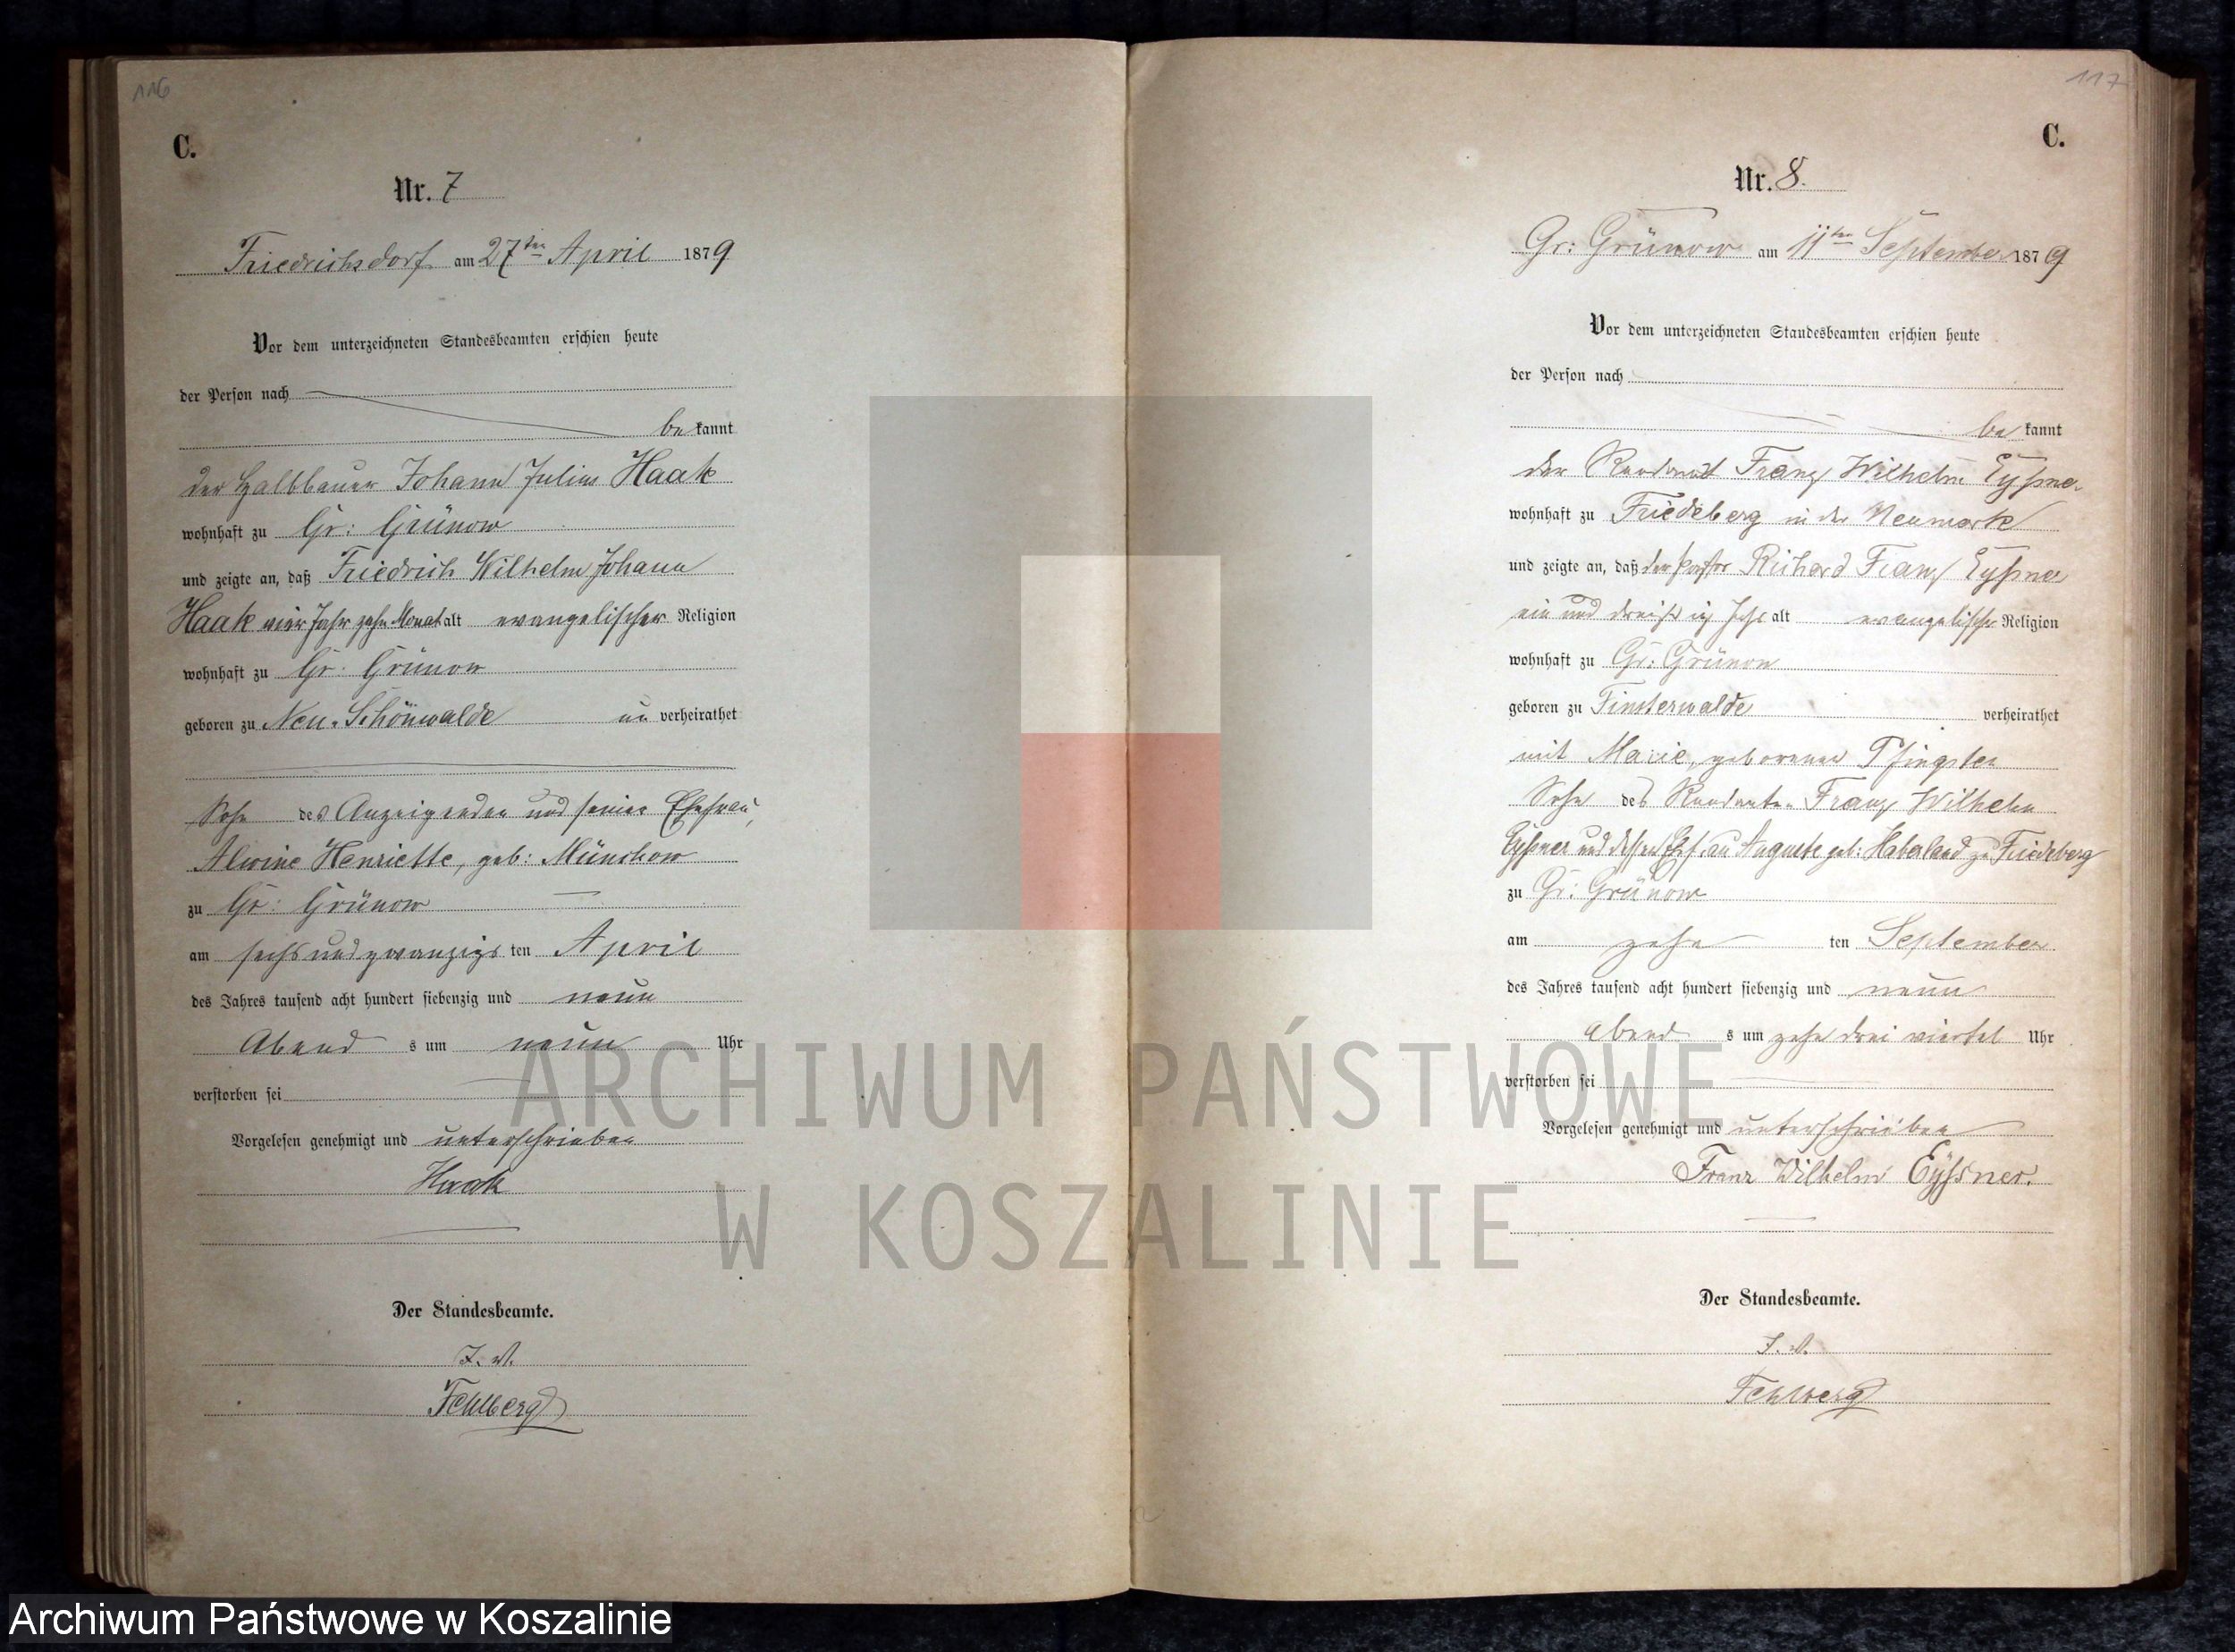 116
C.
Nr. 7
Friedrichsdorf am 27ten April 1879
Vor dem unterzeichneten Standesbeamten erschien heute
der Person nach
be kannt
der Halbbauer Johann Julius Haak
wohnhaft zu Gr: Grünow
und zeigte an, daß Friedrich Wilhelm Johann
Haak vier Jahr zehn Monat alt evangelischer Religion
wohnhaft zu Gr: Grünow
geboren zu Neu-Schönwalde un verheirathet
Sohn des Anzeigenden und seiner Ehefrau,
Alwine Henriette, geb: Münchow
zu Gr: Grünow
am sechsundzwanzigs ten April
des Jahres tausend acht hundert siebenzig und neun
Abend s um neun Uhr
verstorben sei
Vorgelesen genehmigt und unterschrieben
Haak
Der Standesbeamte.
I. V.
Fehlberg
117
C.
Nr. 8.
Gr: Grünow am 11ten September 1879
Vor dem unterzeichneten Standesbeamten erschien heute
der Person nach
be kannt
der Rendant Franz Wilhelm Eyßner
wohnhaft zu Friedeberg in der Neumark
und zeigte an, daß der Pastor Richard Franz Eyßner
ein und dreißig Jahr alt evangelischer Religion
wohnhaft zu Gr: Grünow
geboren zu Finsterwalde verheirathet
mit Marie, geborenen Pfingsten
Sohn des Rendanten Franz Wilhelm
Eyßner und dessen Ehefrau Auguste geb: Haberland zu Friedeberg
zu Gr: Grünow
am zehn ten September
des Jahres tausend acht hundert siebenzig und neun
Abend s um zehn drei viertel Uhr
verstorben sei
Vorgelesen genehmigt und unterschrieben
Franz Wilhelm Eyßner.
Der Standesbeamte.
I. V.
Fehlberg
ARCHIWUM PAŃSTWOWE
W KOSZALINIE
Archiwum Państwowe w Koszalinie